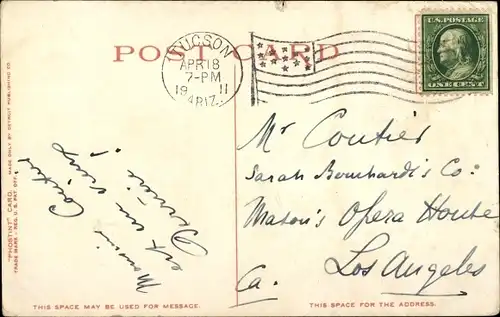 POST CARD
TUCSON
APR 18
7-PM
1911
ARIZ.
U.S. POSTAGE
ONE CENT
Mr Coutier
Sarah Bernhardt's Co:
Mason's Opera House
Los Angeles
Ca.
Monsieur
est un
!
"PHOSTINT" CARD. MADE ONLY BY DETROIT PUBLISHING CO.
TRADE MARK - REG. U.S. PAT. OFF.
THIS SPACE MAY BE USED FOR MESSAGE.
THIS SPACE FOR THE ADDRESS.